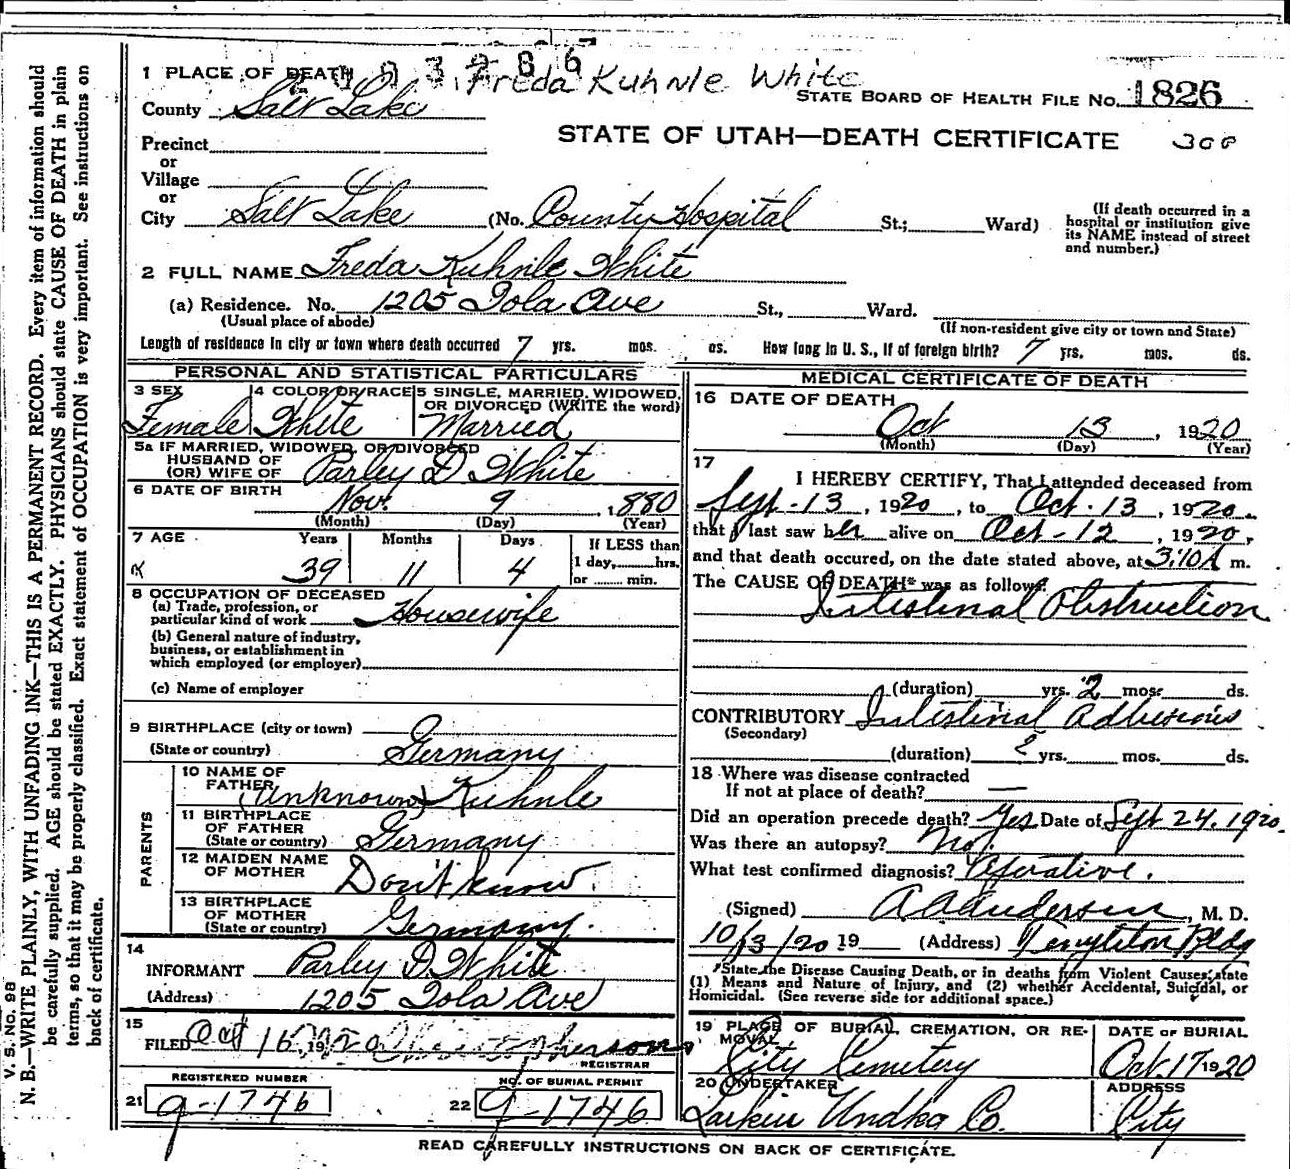 Freda Kuhnle White
1 PLACE OF DEATH
County Salt Lake
STATE BOARD OF HEALTH FILE NO. 1826
STATE OF UTAH—DEATH CERTIFICATE 300
Precinct
or
Village
or
City Salt Lake (No. County Hospital St.; Ward)
(If death occurred in a hospital or institution give its NAME instead of street and number.)
2 FULL NAME Freda Kuhnle White
(a) Residence. No. 1205 Iola Ave St., Ward.
(Usual place of abode) (If non-resident give city or town and State)
Length of residence in city or town where death occurred 7 yrs. mos. ds. How long in U. S., if of foreign birth? 7 yrs. mos. ds.
PERSONAL AND STATISTICAL PARTICULARS
3 SEX Female
4 COLOR OR RACE White
5 SINGLE, MARRIED, WIDOWED, OR DIVORCED (WRITE the word) Married
5a IF MARRIED, WIDOWED, OR DIVORCED
HUSBAND OF
(OR) WIFE OF Parley D. White
6 DATE OF BIRTH Nov. 9, 1880
(Month) (Day) (Year)
7 AGE Years Months Days If LESS than
39 11 4 1 day,......hrs.
or ...... min.
8 OCCUPATION OF DECEASED
(a) Trade, profession, or
particular kind of work Housewife
(b) General nature of industry,
business, or establishment in
which employed (or employer)
(c) Name of employer
9 BIRTHPLACE (city or town)
(State or country) Germany
PARENTS
10 NAME OF
FATHER (Unknown) Kuhnle
11 BIRTHPLACE
OF FATHER
(State or country) Germany
12 MAIDEN NAME
OF MOTHER Don't know.
13 BIRTHPLACE
OF MOTHER
(State or country) Germany.
14
INFORMANT Parley D. White
(Address) 1205 Iola Ave
15
FILED Oct 16 1920
REGISTRAR
REGISTERED NUMBER NO. OF BURIAL PERMIT
21 9-1746 22 9-1746
MEDICAL CERTIFICATE OF DEATH
16 DATE OF DEATH
Oct 13, 1920
(Month) (Day) (Year)
17
I HEREBY CERTIFY, That I attended deceased from
Sept-13, 1920, to Oct-13, 1920.
that I last saw her alive on Oct-12, 1920,
and that death occured, on the date stated above, at 3:10A m.
The CAUSE OF DEATH* was as follows:
Intestinal Obstruction
(duration) yrs. 2 mos. ds.
CONTRIBUTORY Intestinal Adhesions
(Secondary)
(duration) 2 yrs. mos. ds.
18 Where was disease contracted
If not at place of death? —
Did an operation precede death? Yes Date of Sept 24, 1920.
Was there an autopsy? No.
What test confirmed diagnosis? Operative.
(Signed) A A Anderson, M. D.
10/13/20 19 (Address) Templeton Bldg
*State the Disease Causing Death, or in deaths from Violent Causes, state
(1) Means and Nature of Injury, and (2) whether Accidental, Suicidal, or
Homicidal. (See reverse side for additional space.)
19 PLACE OF BURIAL, CREMATION, OR RE-
MOVAL City Cemetery
DATE OF BURIAL
Oct. 17 1920
20 UNDERTAKER
Larkin Undkg Co.
ADDRESS
City
READ CAREFULLY INSTRUCTIONS ON BACK OF CERTIFICATE.
V. S. No. 98
N. B.—WRITE PLAINLY, WITH UNFADING INK—THIS IS A PERMANENT RECORD. Every item of information should
be carefully supplied. AGE should be stated EXACTLY. PHYSICIANS should state CAUSE OF DEATH in plain
terms, so that it may be properly classified. Exact statement of OCCUPATION is very important. See instructions on
back of certificate.